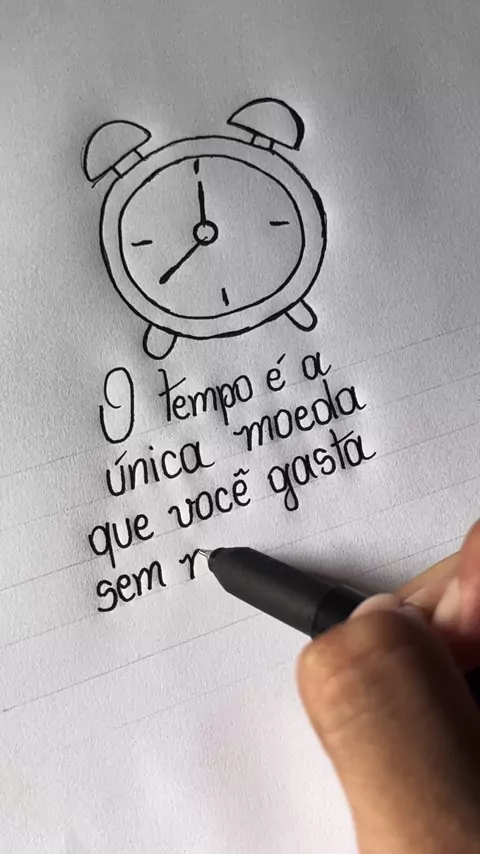 O tempo é a
única moeda
que você gasta
sem